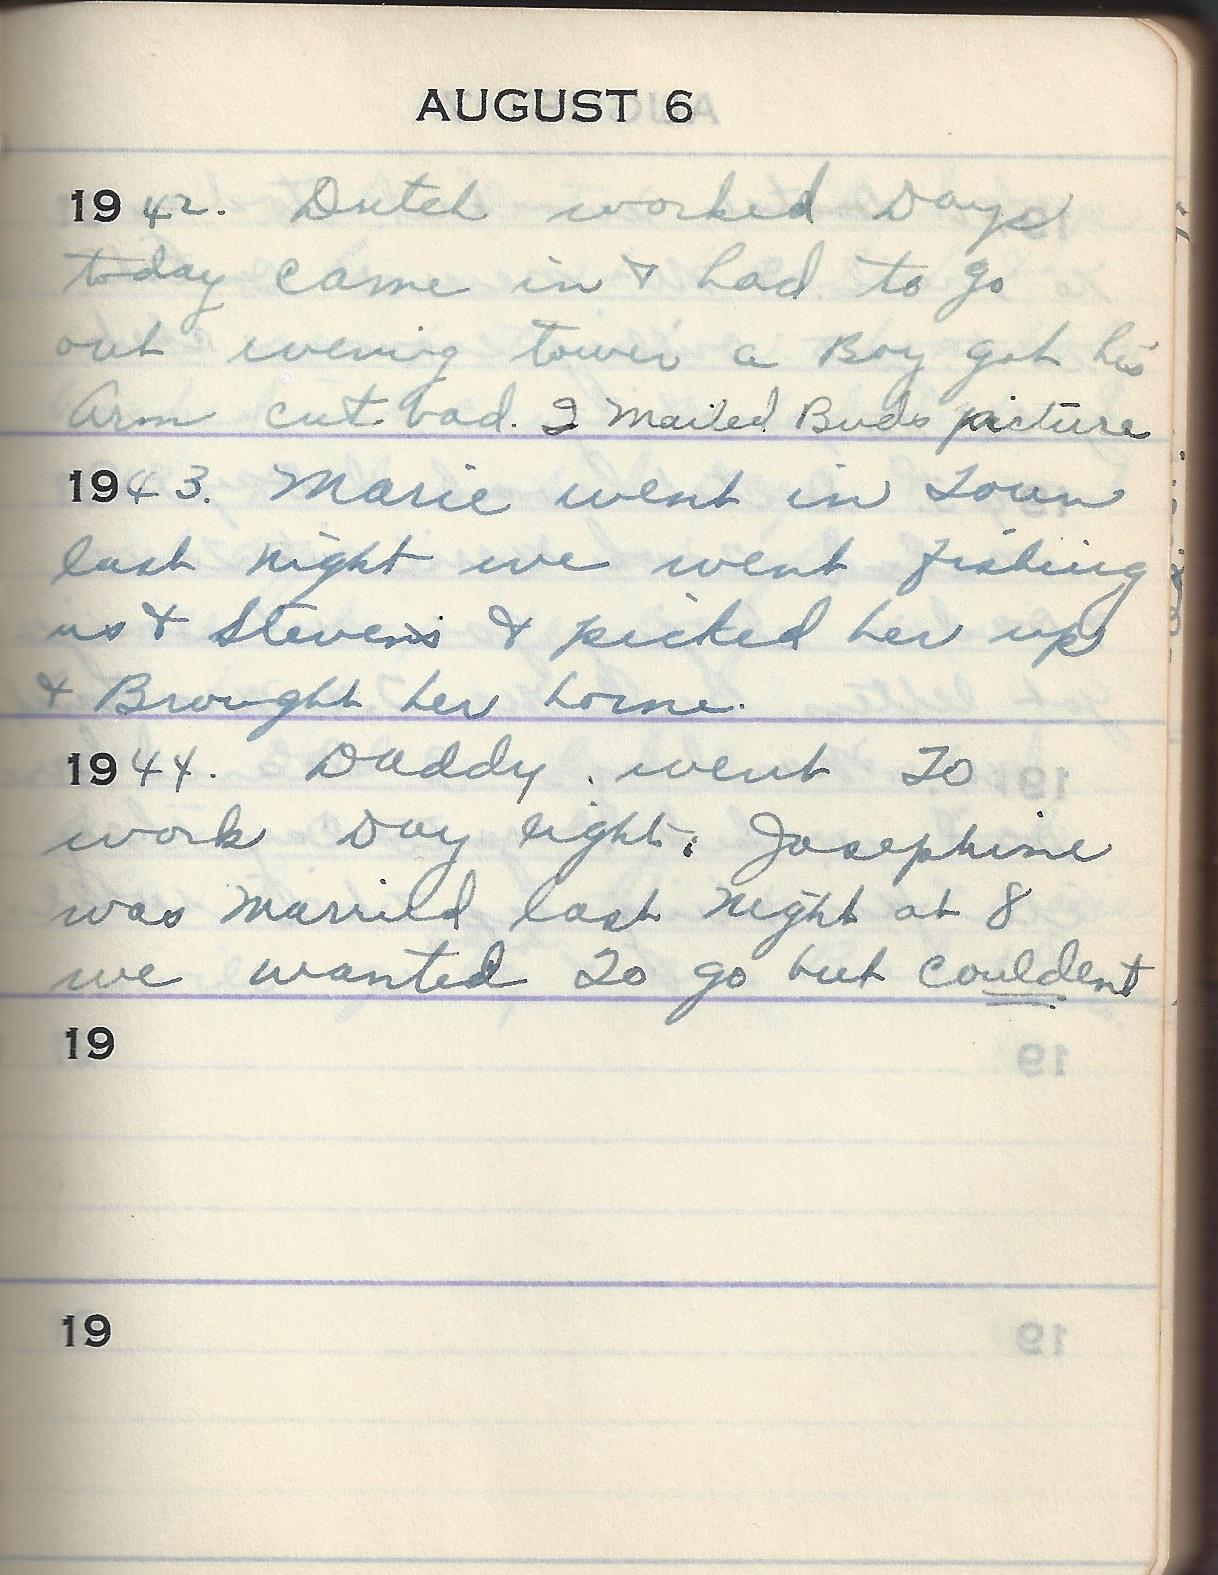 AUGUST 6
1942. Dutch worked Days
today came in & had to go
out evening tower a Boy got his
Arm cut bad. I Mailed Buds picture
1943. Marie went in Town
last night we went fishing
us & Stevens & picked her up
& Brought her home.
1944. Daddy went To
work Day light. Josephine
was Married last night at 8
we wanted To go but couldent
19
19